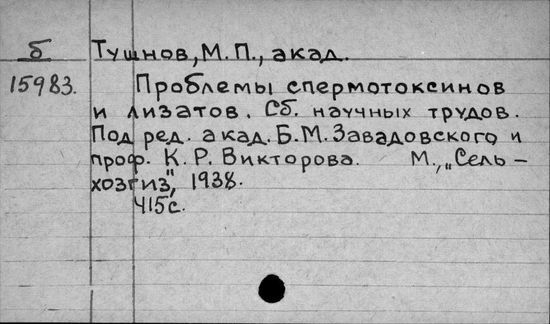 б
Тушнов, М. П., акад.
15983.
Проблемы спермотоксинов
и лизатов. Сб. научных трудов.
Под ред. акад. Б. М. Завадовского и
проф. К. Р. Викторова. М., „Сель-
хозгиз", 1938.
415с.